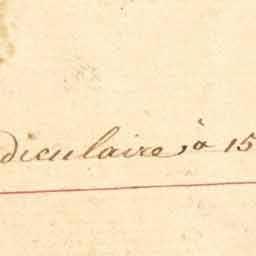 diculaire, à 15